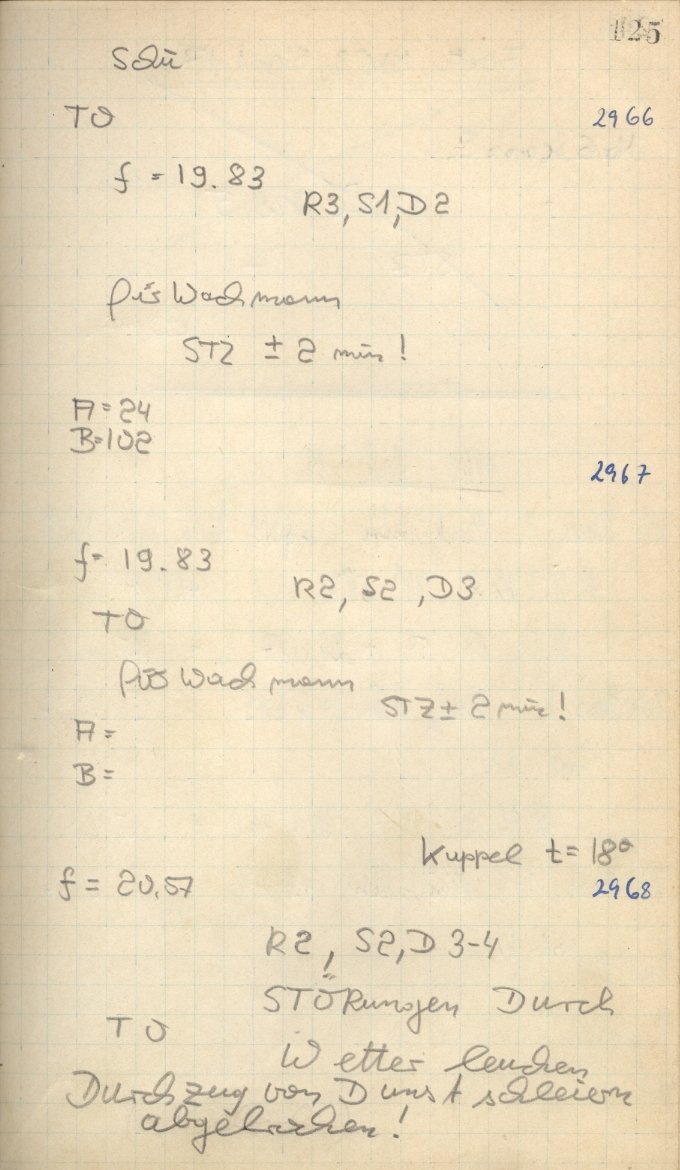 125
Schü
TO
2966
f = 19.83
R3, S1, D2
für Wachmann
STZ ± 2 min!
A = 24
B = 102
2967
f = 19.83
R2, S2, D3
TO
für Wachmann
STZ ± 2 min!
A =
B =
Kuppel t = 18°
f = 20.57
2968
R2, S2, D 3-4
!
STÖRungen Durch
TO
Wetterleuchen
Durchzug von Dunstschleiern
abgebrochen!